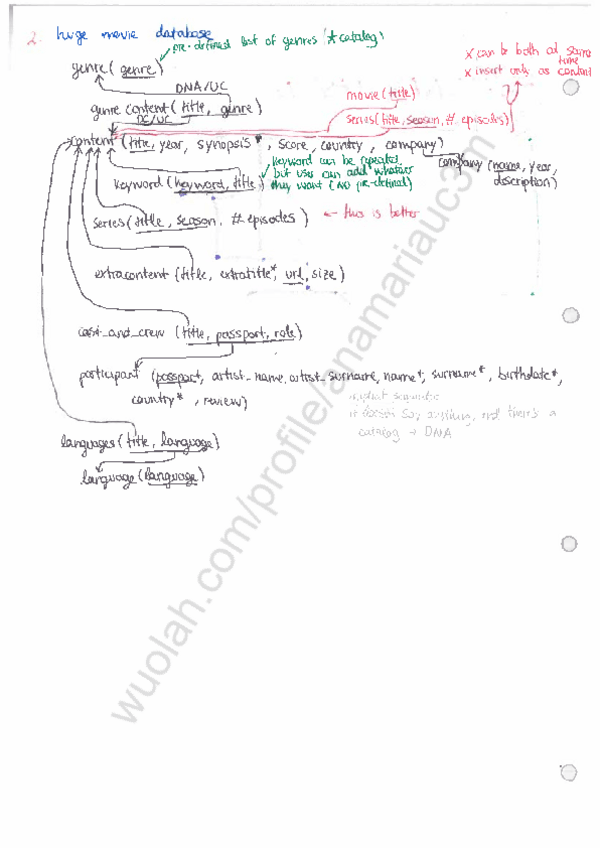 2. huge movie database
pre-defined list of genres (*catalog)
genre (genre)
DNA/UC
genre content (title, genre)
DC/UC
movie (title)
series (title, season, #. episodes)
x can be both at same time
x insert only as content
content (title, year, synopsis*, score, country, company)
company (name, year, description)
keyword (keyword, title)
keyword can be repeated,
but user can add whatever
they want (NO pre-defined)
series (title, season, #episodes)
← this is better
extracontent (title, extratitle*, url, size)
cast_and_crew (title, passport, role)
participant (passport, artist_name, artist_surname, name*, surname*, birthdate*,
country*, review)
implicit semantic
it doesn't say anything, and there's a
catalog → DNA
languages (title, language)
language (language)
wuolah.com/profile/anamariauc3m